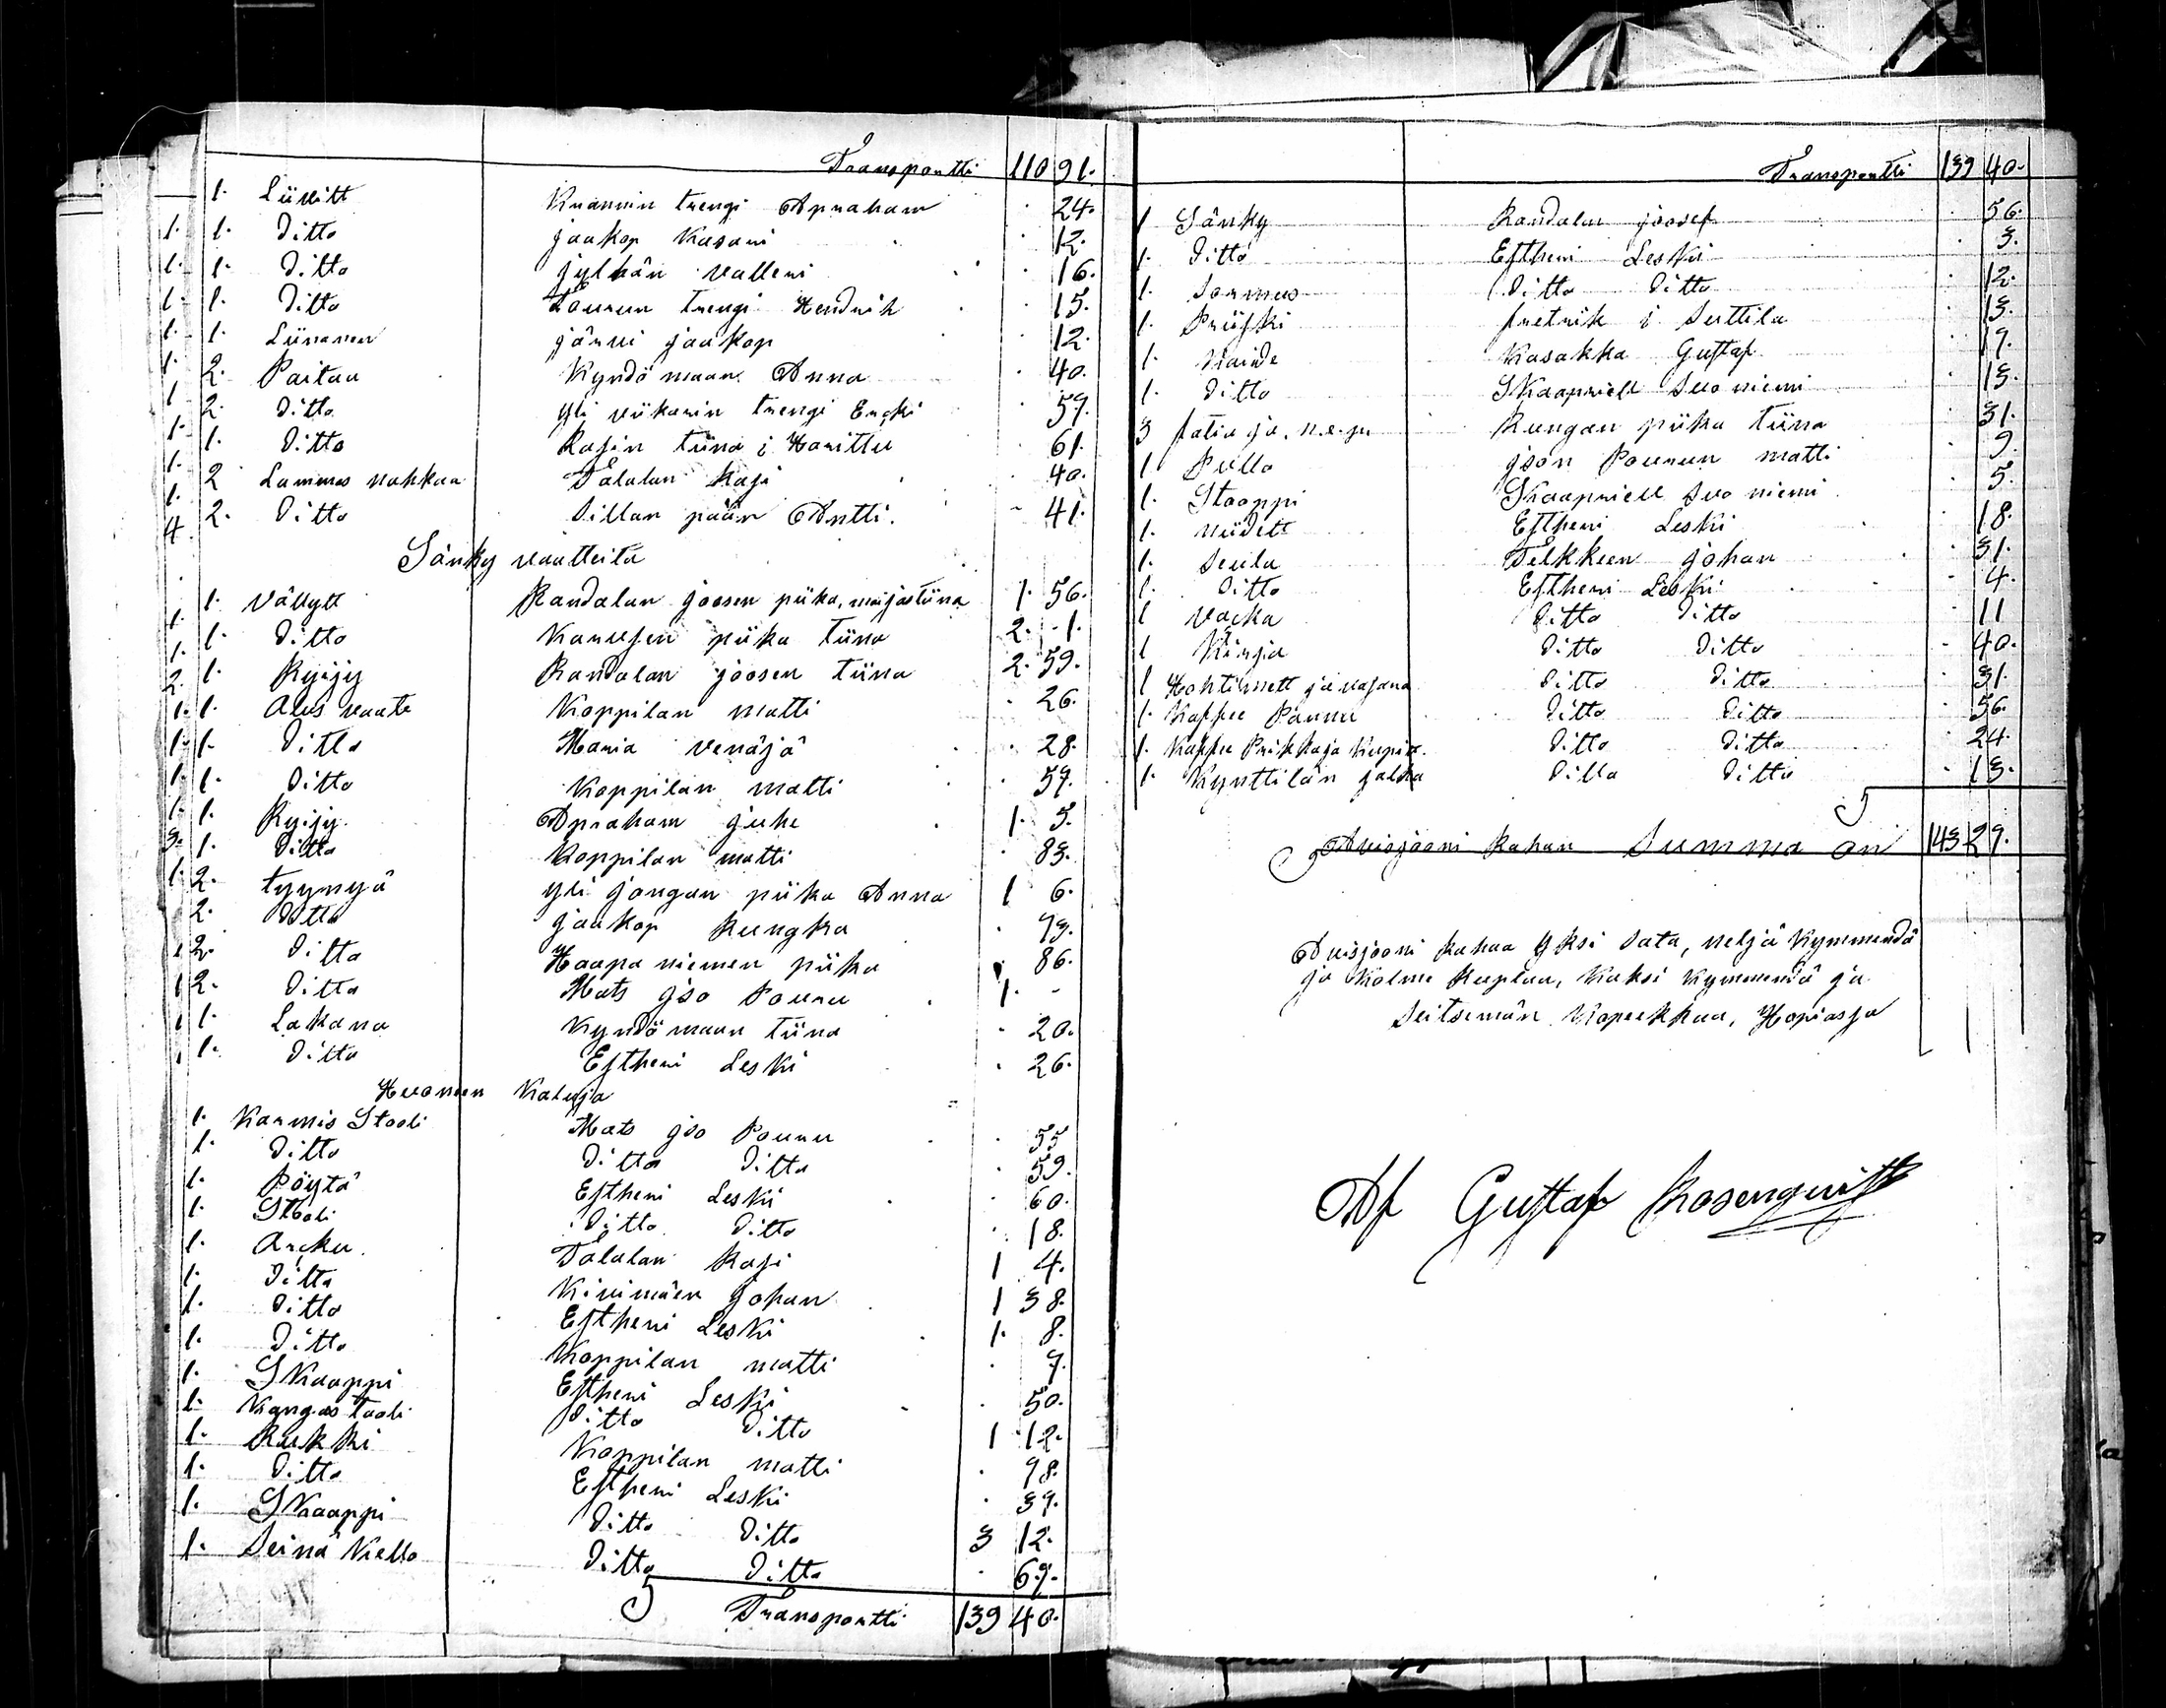 Transportti 110 91.
1. Liivitt Knannin trengi Apraham . 24.
1. Ditto Jaakop Kasani . 12.
1. Ditto Jylhän valleni . 16.
1. Ditto Lourun trengi Hendrik . 15.
1. Liinanen järvi jaakop . 12.
2. Paitaa Kyndö maan Anna . 40.
2. Ditto yli viikarin trengi Ercki . 57.
1. Ditto Rasin tiina i Harittu . 61.
2 Lammas nahkaa Talalan Kaji . 40.
2. Ditto Sillan pään Antti. - 41.
Sänky vaatteita
1. Vällytt Randalan joosen piika, maijastiina 1. 56.
1. Ditto piika Tiina 2. - 1.
1. Ryijy Randalan joosen tiina 2. 59.
1. Alus vaate Koppilan matti . 26.
1. Ditto Maria venäjä . 28.
1. Ditto Koppilan matti . 57.
1. Ryijy. Apraham juhe 1. 5.
1. Ditto Koppilan matti . 83.
2. tyynyjä yli jongan piika Anna 1 6.
2. Ditto Jaakop Kungka . 79.
2. Ditto Haapa niemen piika . 86.
2. Ditto Mats Jso Pouru 1. -
1. Lakana Kyndö maan tiina . 20.
1. Ditto Estheni Leski . 26.
Huoneen Kaluja
1. Karmis Stooli Mats Jso Pouru . 55
1. Ditto Ditto Ditto . 59.
1. Pöytä Estheni Leski . 60.
1. Stooli Ditto Ditto . 18.
1. Arcku Talalan Kaji 1 4.
1. Ditto Kivimäen Johan 1 38.
1. Ditto Estheni Leski 1. 8.
1. Ditto Koppilan matti . 7.
1. SKaappi Estheni Leski . 50.
1. Kangas tooli Ditto Ditto 1 12.
1. Rukki Koppilan matti . 98.
1. Ditto Estheni Leski . 37.
1. SKaappi Ditto Ditto 3 12.
1. Seinä Kello Ditto Ditto . 67.
Transportti 139 40.
Transportti 139 40.
1 Sänky Randalan joosef . 56.
1. Ditto Estheni Leski . 3.
1. Sormus Ditto Ditto . 12.
1. Priiski fretrik i Suttila . 13.
1. Kasakka Gustaf . 17.
1. Ditto SKaapriell Suo niemi . 13.
3 fatia ja, n.e.pu Rungan piika tiina . 31.
1 Pullo json Pourun matti . 9.
1. Stooppi SKaapriell Suo niemi . 5.
1. niidett Estheni Leski . 18.
1. Seula Telkkeen Johan . 31.
1. Ditto Estheni Leski . 4.
1 Vacka Ditto Ditto . 11
1 Kirja Ditto Ditto . 40.
1 Hohtimett ja vasara Ditto Ditto . 31.
1. Kaffee Pannu Ditto Ditto . 56.
1. Kaffee Prikka ja Kuppia. Ditto Ditto . 24.
1. Kynttilän jalka Ditto Ditto . 13.
Auisjooni Rahan Summa on 143 27.
Auisjooni Rahaa Yksi Sata, neljä Kymmendä
ja Kolme Ruplaa, Kaksi Kymmendä ja
Seitsemän Kopeekkaa, Hopiassa
Af Gustaf Rosenqvist